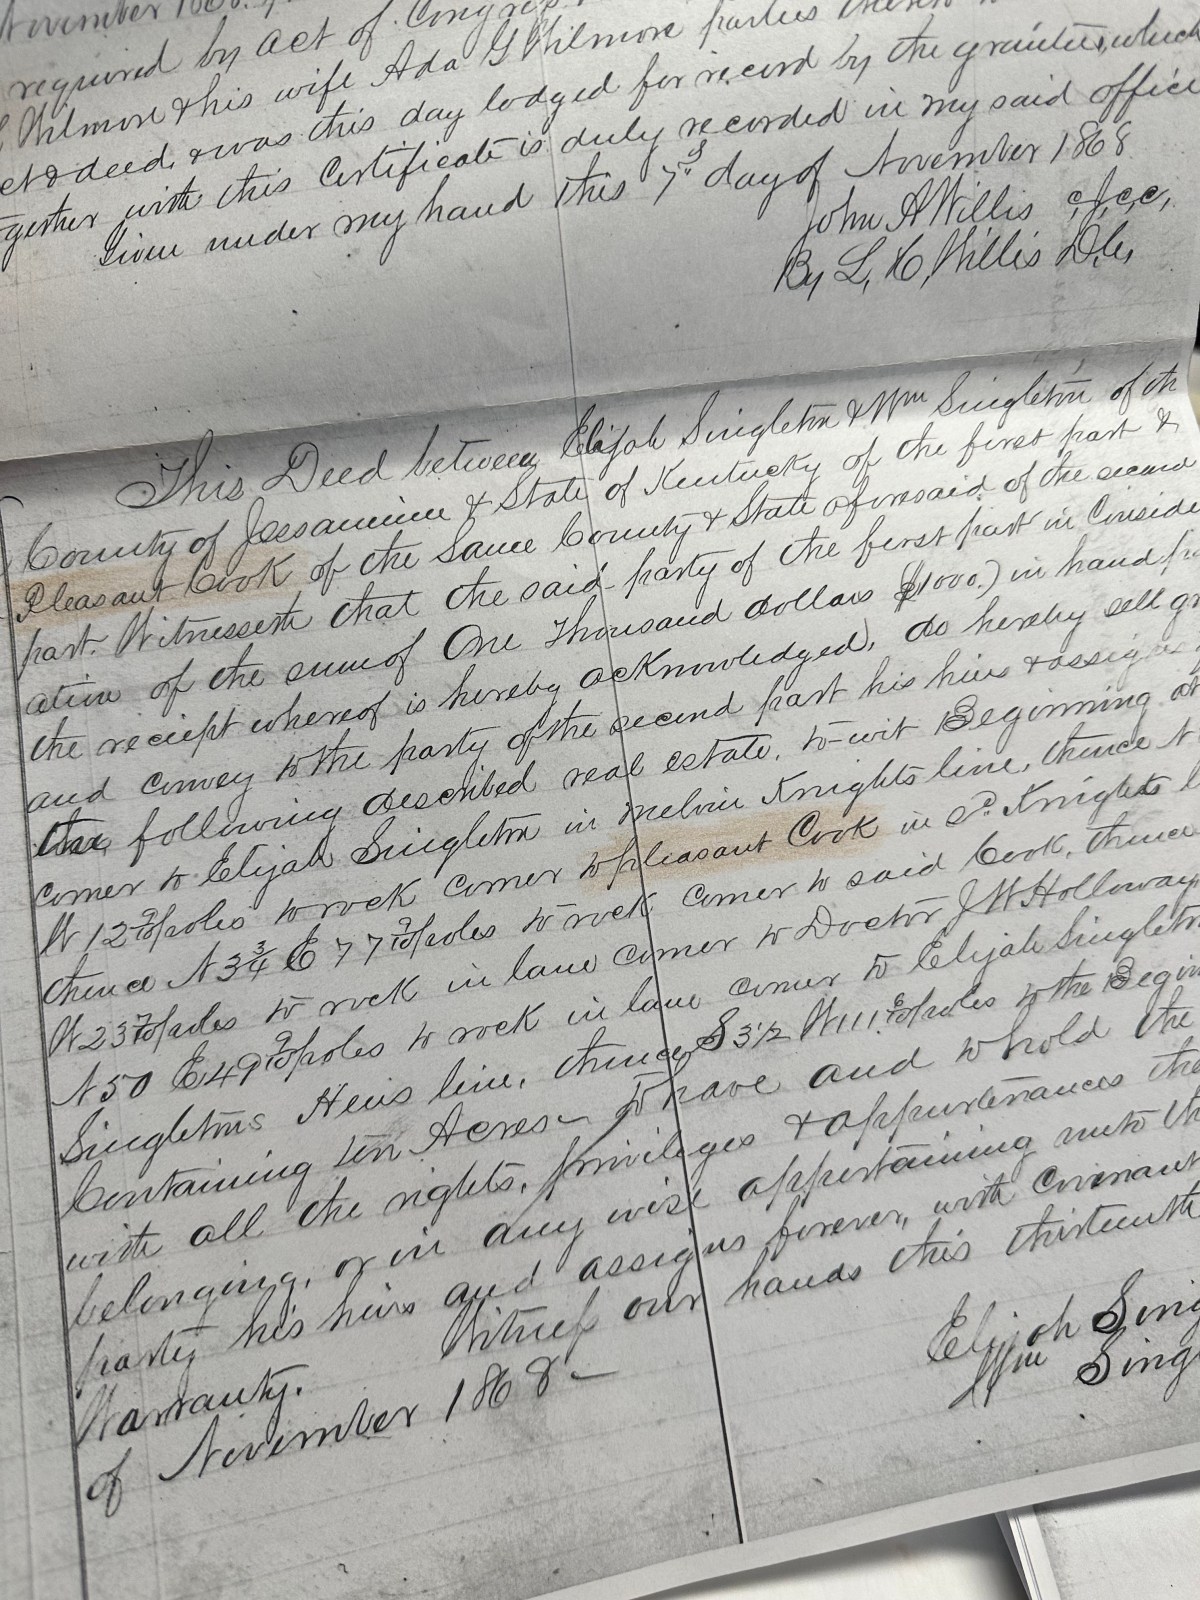 November 1868.
required by act of Congress
Wilmore & his wife Ada G Wilmore parties thereto
act & deed. & was this day lodged for record by the grantee, which
together with this certificate is duly recorded in my said office
Given under my hand this 7" day of November 1868
John A Willis c,J,c,c,
By L, C, Willis D.C,
This Deed between Elijah Singleton & Wm Singleton of th
County of Jessamine & State of Kentucky of the first part &
Pleasant Cook of the Same County & State aforesaid of the second
part. Witnesseth that the said party of the first part in Conside
ation of the sum of One Thousand dollars ($1000.) in hand pa
the reciept whereof is hereby acknowledged, do hereby sell gr
and convey to the party of the second part his heirs & assigns
the following described real estate, to-wit Beginning at
corner to Elijah Singleton in Melvin Knights line, thence N
W 12 poles to rock corner to pleasant Cook in P. Knights l
thence N 3¾ E 77 poles to rock corner to said Cook, thence
W 23 poles to rock in lane corner to Doctor J W Holloway
N 50 E 49 poles to rock in lane corner to Elijah Singleton
Singletons Heirs line, thence S 3½ W 111 poles to the Begin
Containing ten Acres – To have and to hold the
with all the rights, privileges & appurtenances the
belonging, or in any wise appertaining unto th
party his heirs and assigns forever, with Covenant
Warranty. Witness our hands this thirteenth
of November 1868 –
Elijah Sing
Wm Singl